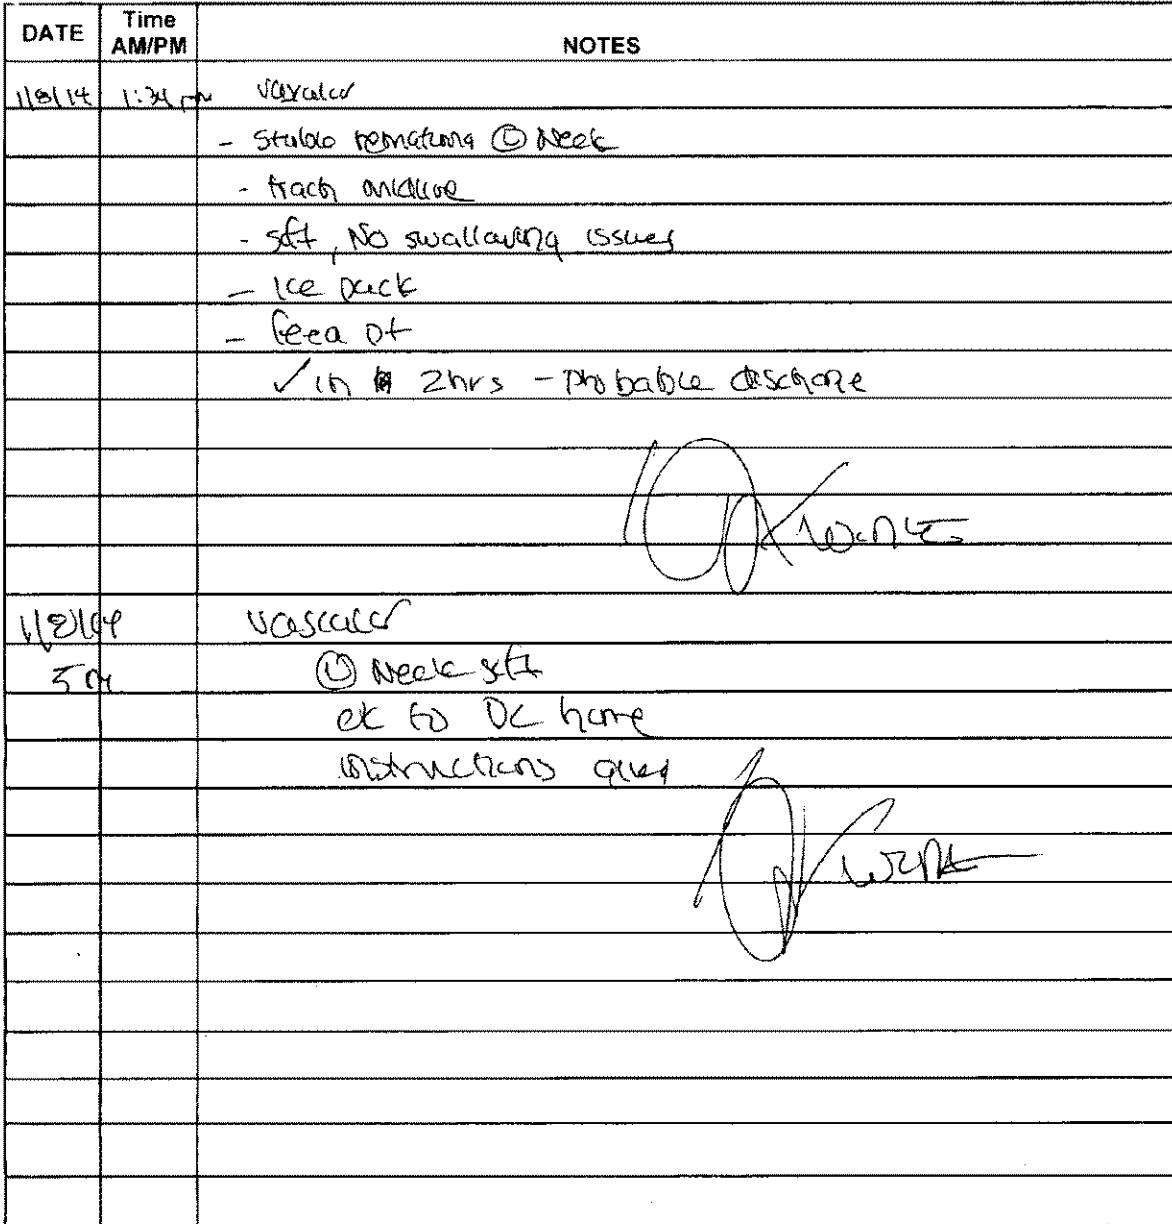 DATE Time AM/PM NOTES
1/8/14 1:34 pm vascular
- Stable hematoma Ⓛ Neck
- trach midline
- soft, No swallowing issues
- Ice pack
- feed pt
✓ in 2hrs - probable discharge
1/8/14 vascular
5 pm Ⓛ Neck soft
ok to DC home
instructions given